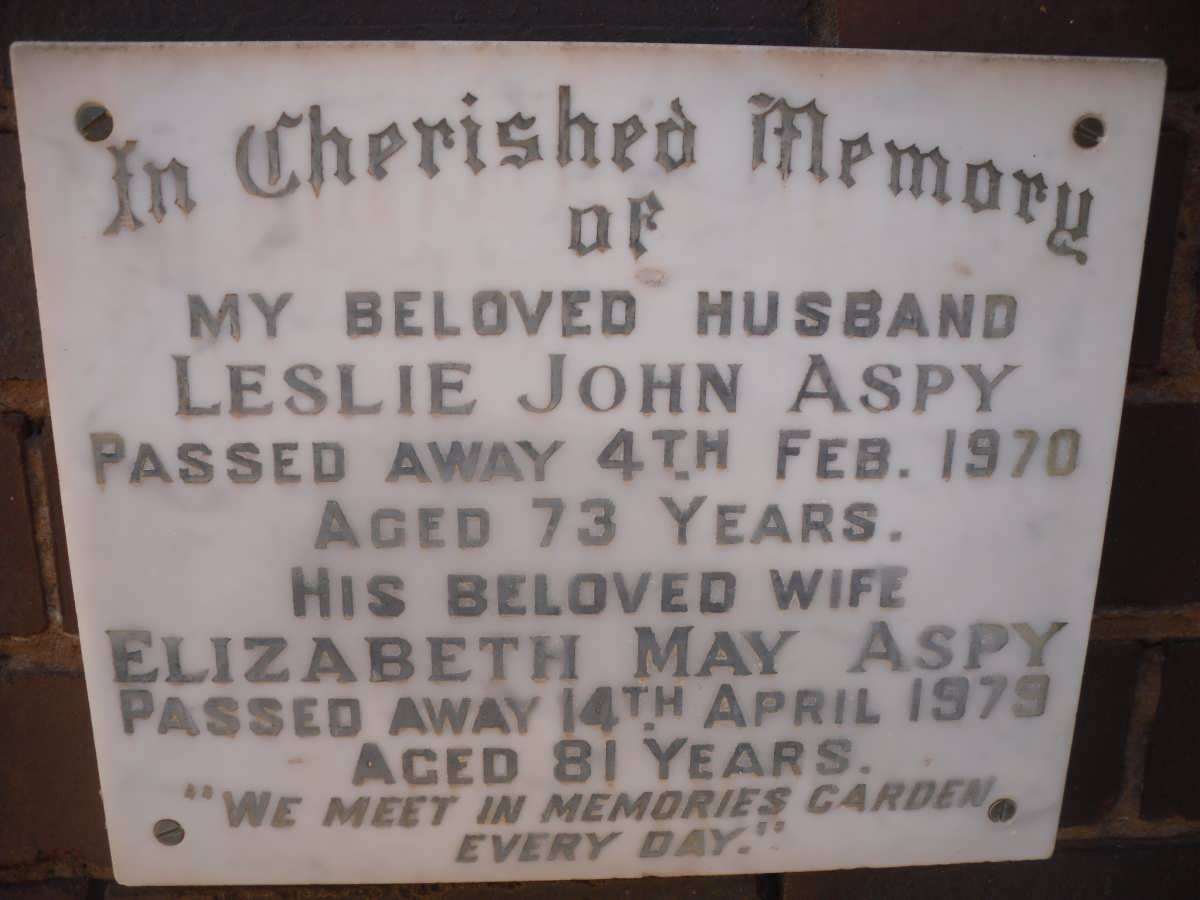 In Cherished Memory
of
MY BELOVED HUSBAND
LESLIE JOHN ASPY
PASSED AWAY 4TH. FEB. 1970
AGED 73 YEARS.
HIS BELOVED WIFE
ELIZABETH MAY ASPY
PASSED AWAY 14TH. APRIL 1979
AGED 81 YEARS.
"WE MEET IN MEMORIES GARDEN
EVERY DAY."